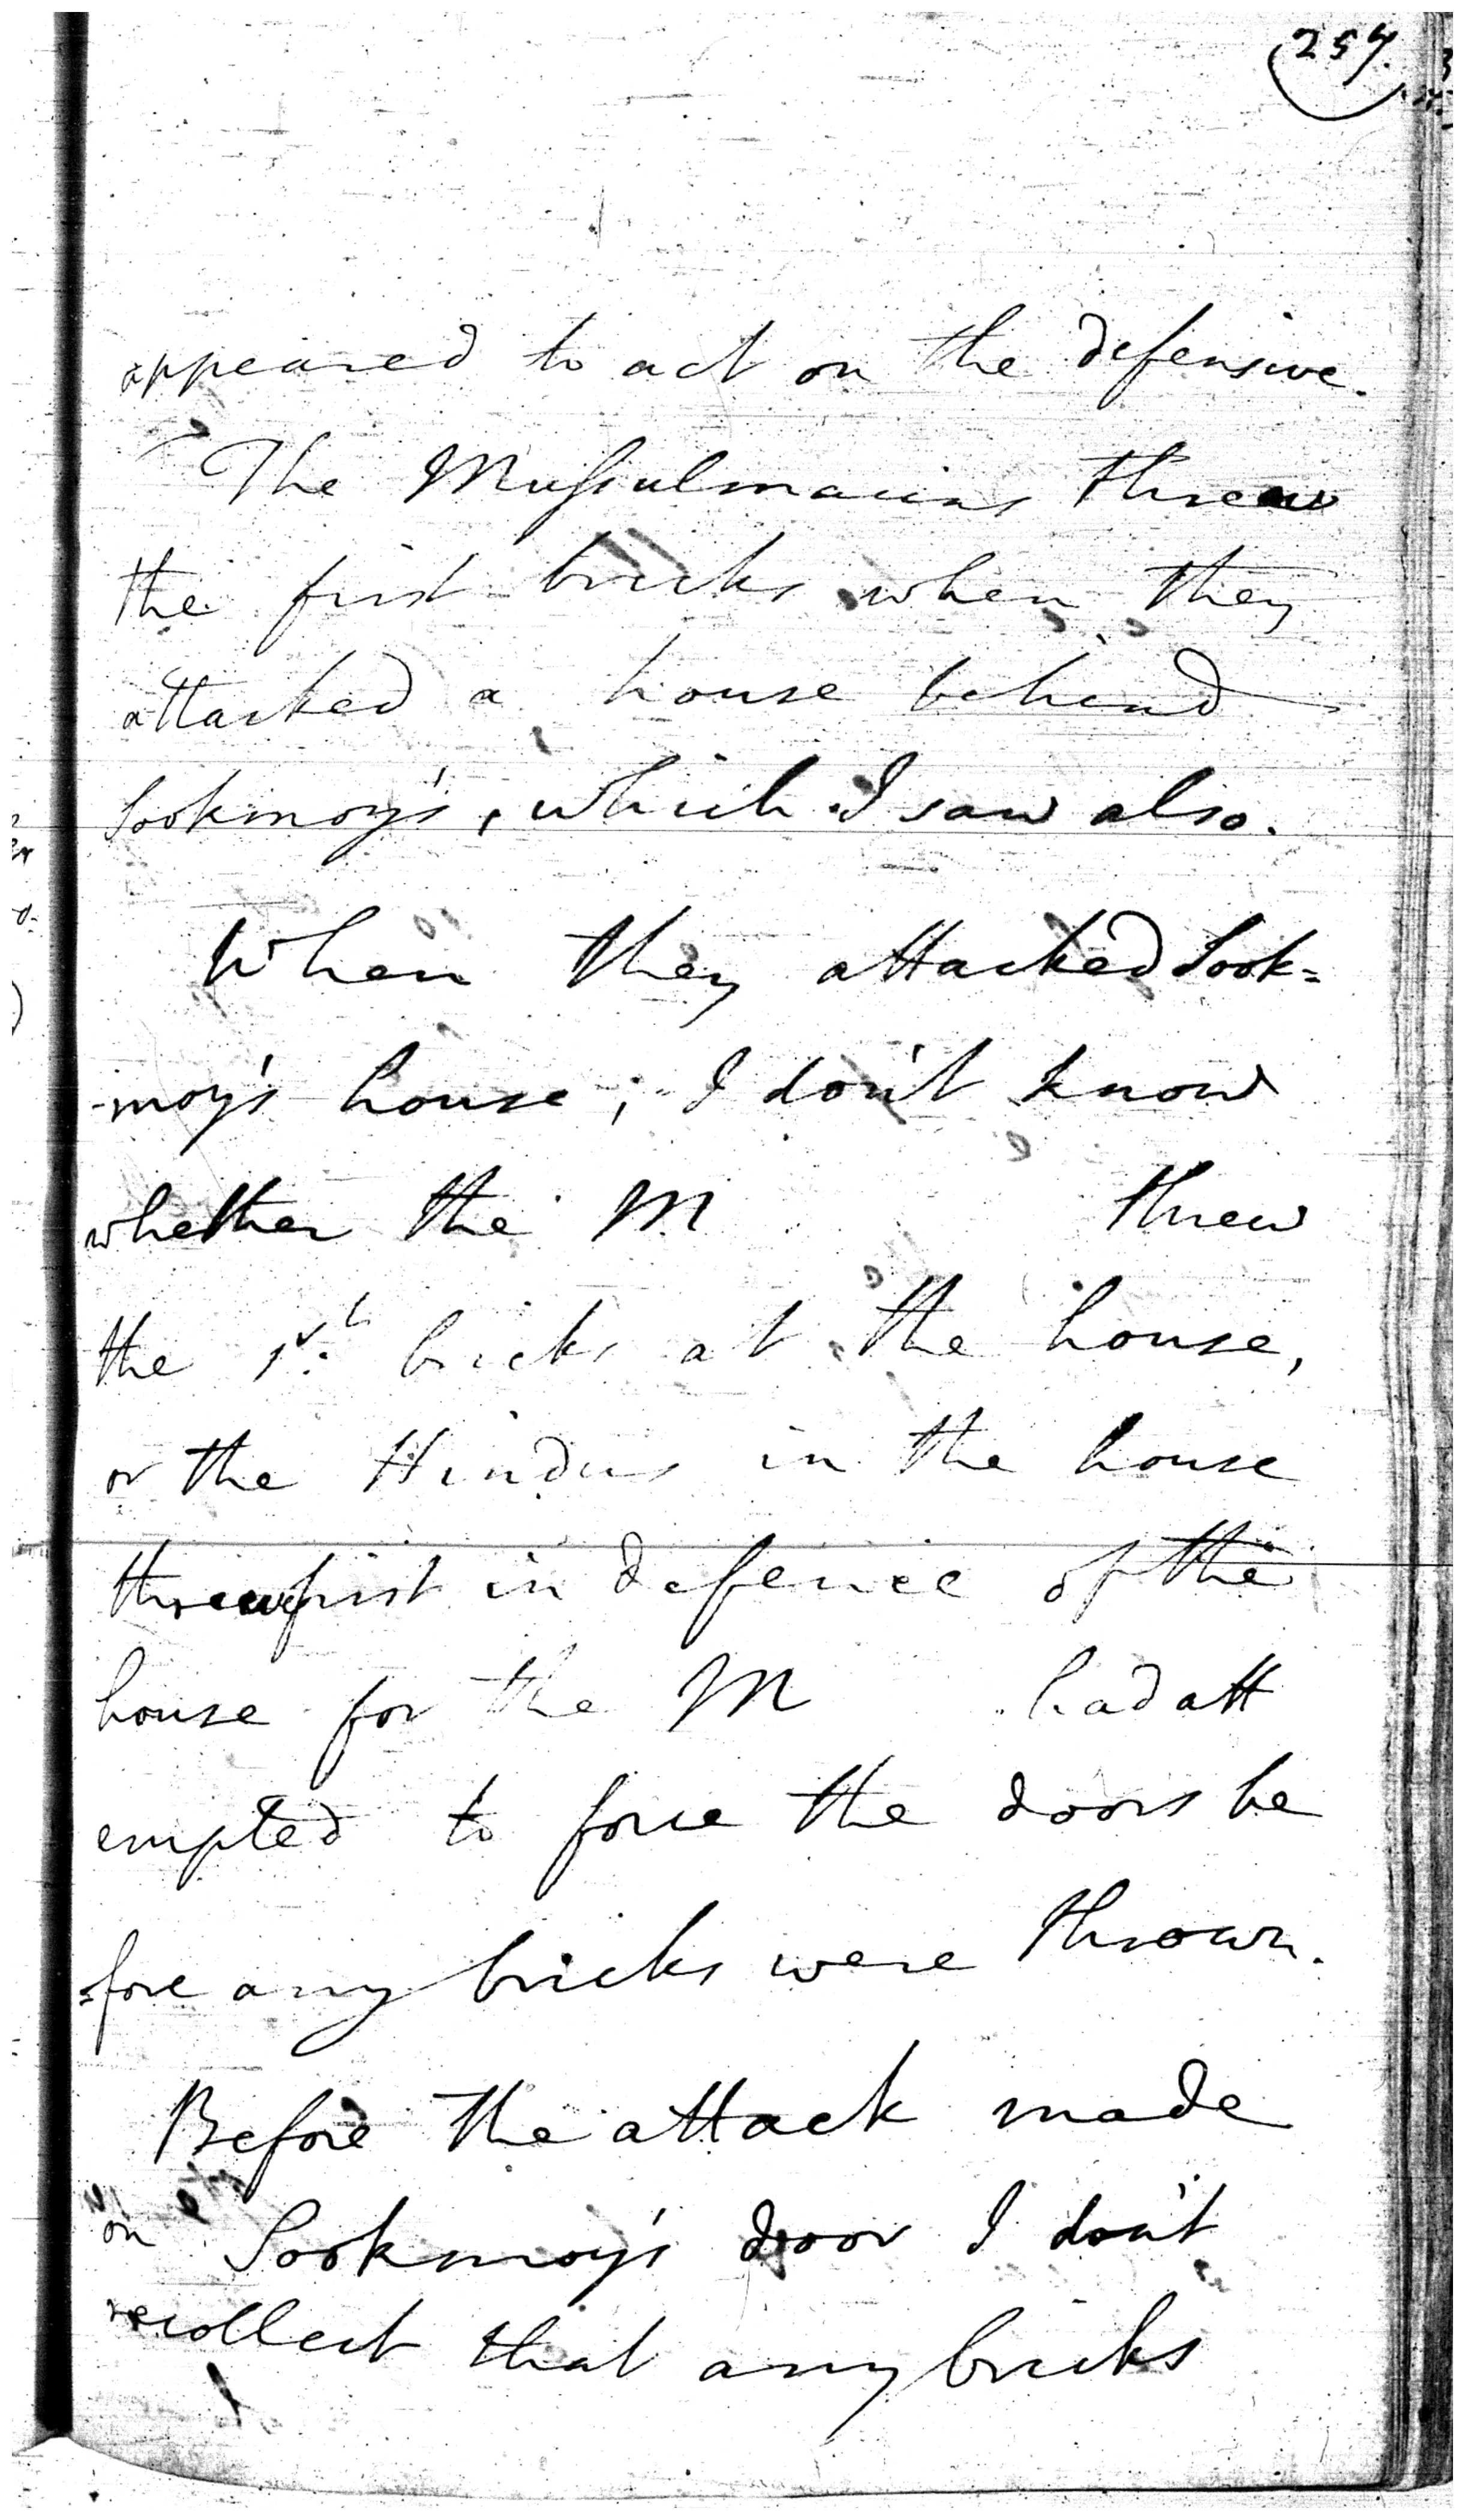 257.
appeared to act on the defensive.
The Mussulmauns threw
the first bricks when they
attacked a house behind
Sookmoy's, which I saw also.
When they attacked Sook=
-moy's house; I don't know
whether the M threw
the 1st bricks at the house,
or the Hindus in the house
threw first in defence of the
house for the M had att
empted to force the doors be
=fore any bricks were thrown.
Before the attack made
on Sookmoy's door I don't
recollect that any bricks